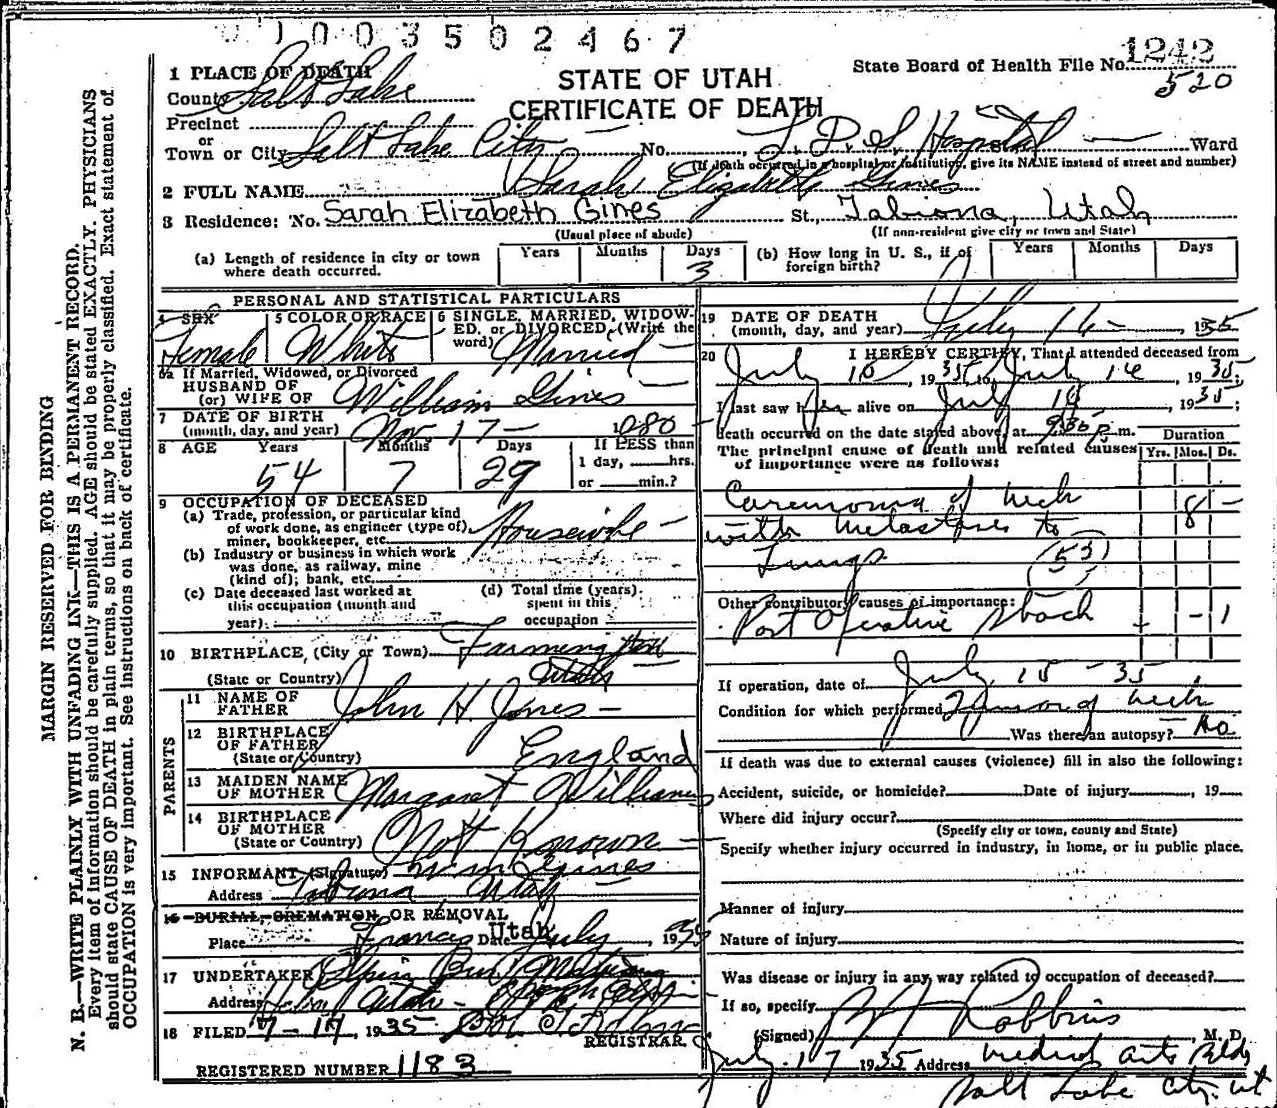 0 1 0 0 3 5 0 2 4 6 7
1242
State Board of Health File No.
520
STATE OF UTAH
CERTIFICATE OF DEATH
1 PLACE OF DEATH
County Salt Lake
Precinct
or
Town or City Salt Lake City No. L. D. S. Hospital Ward
(If death occurred in a hospital or institution, give its NAME instead of street and number)
2 FULL NAME Sarah Elizabeth Gines
3 Residence: No. Sarah Elizabeth Gines St., Tabiona, Utah
(Usual place of abode) (If non-resident give city or town and State)
(a) Length of residence in city or town where death occurred. Years Months Days 3 (b) How long in U. S., if of foreign birth? Years Months Days
PERSONAL AND STATISTICAL PARTICULARS
4 SEX Female 5 COLOR OR RACE White 6 SINGLE, MARRIED, WIDOWED, or DIVORCED, (Write the word) Married
6a If Married, Widowed, or Divorced
HUSBAND OF
(or) WIFE OF William Gines
7 DATE OF BIRTH
(month, day, and year) Nov 17 - 1880
8 AGE Years Months Days If LESS than
54 7 29 1 day, hrs.
or min.?
9 OCCUPATION OF DECEASED
(a) Trade, profession, or particular kind
of work done, as engineer (type of), Housewife
miner, bookkeeper, etc.
(b) Industry or business in which work
was done, as railway, mine
(kind of); bank, etc.
(c) Date deceased last worked at
this occupation (month and
year)
(d) Total time (years)
spent in this
occupation
10 BIRTHPLACE, (City or Town) Farmington
(State or Country) Utah
PARENTS
11 NAME OF
FATHER John H Jones
12 BIRTHPLACE
OF FATHER
(State or Country) England
13 MAIDEN NAME
OF MOTHER Margaret Williams
14 BIRTHPLACE
OF MOTHER
(State or Country) Not Known
15 INFORMANT (Signature) Wm Gines
Address Tabiona Utah
16 BURIAL, CREMATION OR REMOVAL
Place Francis Utah Date July , 1935
17 UNDERTAKER
Address Utah
18 FILED 7-17, 1935
REGISTRAR.
REGISTERED NUMBER 1183
19 DATE OF DEATH
(month, day, and year) July 16 , 1935
20 I HEREBY CERTIFY, That I attended deceased from
July 10, 1935, to July 16, 1935;
I last saw her alive on July 16, 1935;
death occurred on the date stated above, at 9:30 p. m.
The principal cause of death and related causes
of importance were as follows:
Duration
Yrs. Mos. Ds.
Carcinoma of neck
with metastases to 8 -
Lungs (53)
Other contributory causes of importance:
Post Operative Shock - - 1
If operation, date of July 15 - 35
Condition for which performed Tumor of neck
Was there an autopsy? No
If death was due to external causes (violence) fill in also the following:
Accident, suicide, or homicide? Date of injury , 19
Where did injury occur?
(Specify city or town, county and State)
Specify whether injury occurred in industry, in home, or in public place.
Manner of injury
Nature of injury
Was disease or injury in any way related to occupation of deceased?
If so, specify
(Signed) Robbins , M. D.
July 17 1935 Address Medical Arts Bldg
Salt Lake City, Ut
MARGIN RESERVED FOR BINDING
N. B.—WRITE PLAINLY WITH UNFADING INK—THIS IS A PERMANENT RECORD.
Every item of information should be carefully supplied. AGE should be stated EXACTLY. PHYSICIANS
should state CAUSE OF DEATH in plain terms, so that it may be properly classified. Exact statement of
OCCUPATION is very important. See instructions on back of certificate.